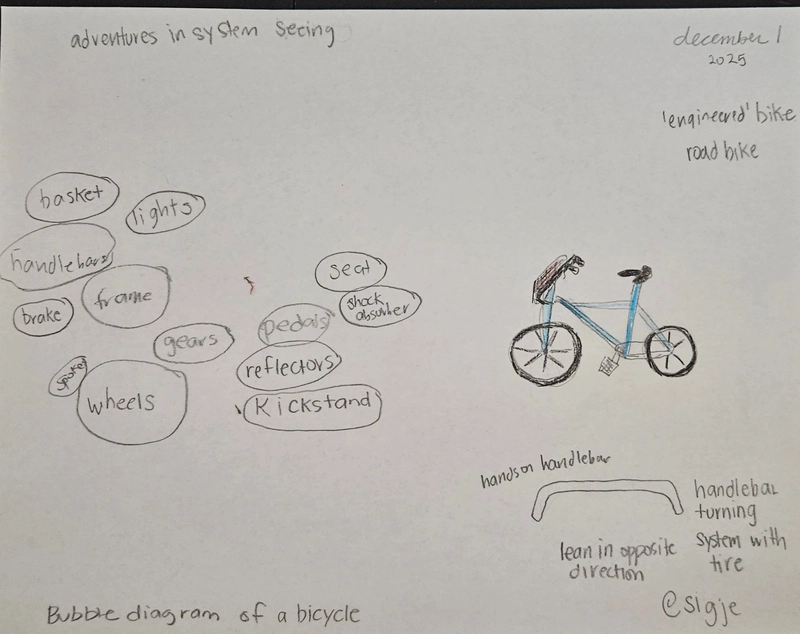 adventures in system seeing
december 1
2025
'engineered' bike
road bike
basket
lights
handlebars
frame
brake
gears
spokes
wheels
seat
shock
absorber
pedals
reflectors
Kickstand
hands on handlebar
handlebar
turning
system with
tire
lean in opposite
direction
@sigje
Bubble diagram of a bicycle